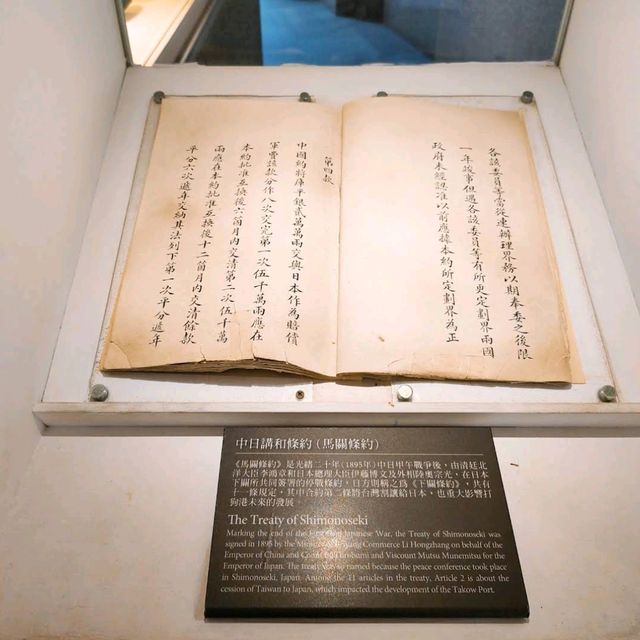 各該委員等當從速辦理界務以期奉委之後限
一年竣事但遇各該委員等有所更定劃界兩國
政府未經認准以前應據本約所定劃界為正
第四款
中國約將庫平銀貳萬萬兩交與日本作為賠償
軍費該款分作八次交完第一次伍千萬兩應在
本約批准互換後六箇月內交清第二次伍千萬
兩應在本約批准互換後十二箇月內交清餘款
平分六次遞年交納其法列下第一次平分遞年
中日講和條約（馬關條約）
《馬關條約》是光緒二十年(1895年)中日甲午戰爭後，由清廷北
洋大臣李鴻章和日本總理大臣伊藤博文及外相陸奧宗光，在日本
下關所共同簽署的停戰條約，日方則稱之為《下關條約》，共有
十一條規定，其中合約第二條將台灣割讓給日本，也重大影響打
狗港未來的發展。
The Treaty of Shimonoseki
Marking the end of the First Japanese War, the Treaty of Shimonoseki was
signed in 1895 by the Minister of Commerce Li Hongzhang on behalf of the
Emperor of China and Count and Viscount Mutsu Munemitsu for the
Emperor of Japan. The treaty was so named because the peace conference took place
in Shimonoseki, Japan. Among the 11 articles in the treaty, Article 2 is about the
cession of Taiwan to Japan, which impacted the development of the Takow Port.